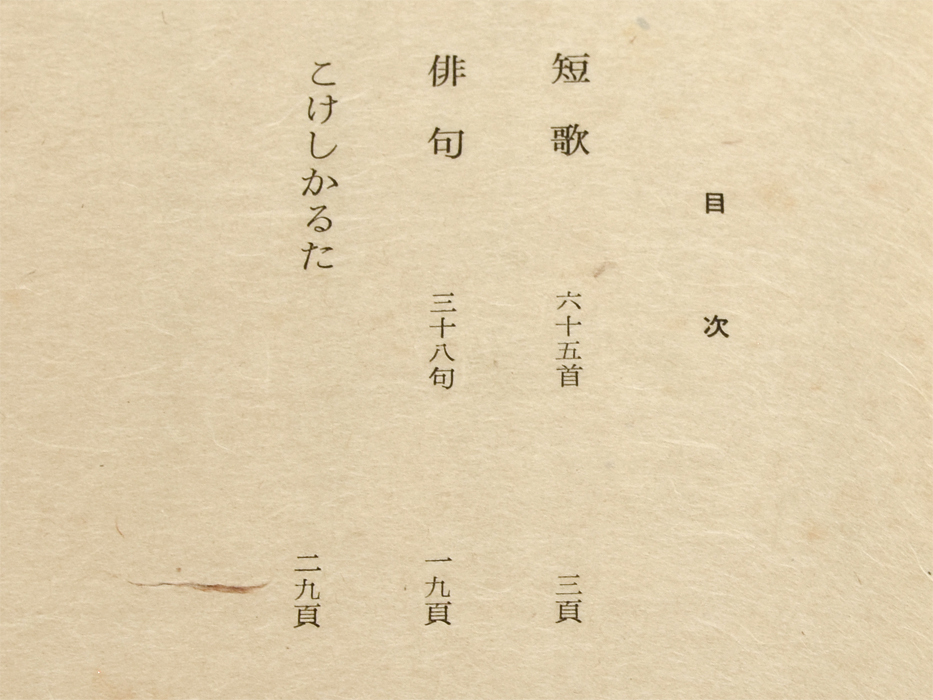 目次
短歌 六十五首 三頁
俳句 三十八句 一九頁
こけしかるた 二九頁